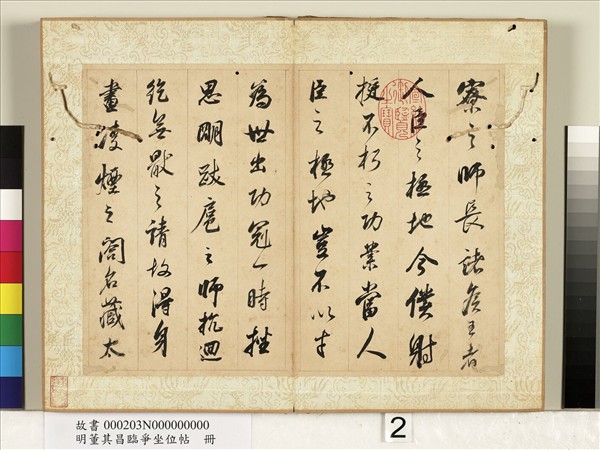 寮之師長諸侯王者
人臣之極地今僕射
挺不朽之功業當人
臣之極地豈不以才
為世出功冠一時挫
思明跋扈之師抗迴
紇無厭之請故得身
畫凌煙之閣名藏太
故書 000203N000000000
明董其昌臨爭坐位帖 冊
2